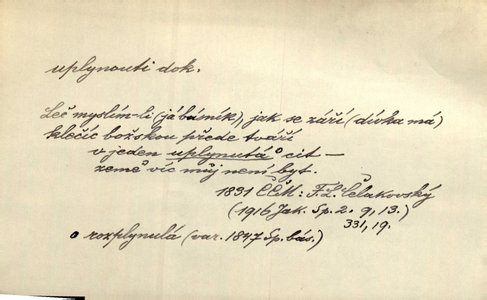 uplynouti dok.
Leč myslím-li (já básník), jak se září (dívka má)
klečíc božskou přede tváří
v jeden uplynutá o cit —
země víc můj není byt.
1831 ČČM: F. L. Čelakovský
(1916 Jak. Sp. 2. 9, 13.)
331, 19.
o rozplynulá (var. 1847 Sp. bás.)